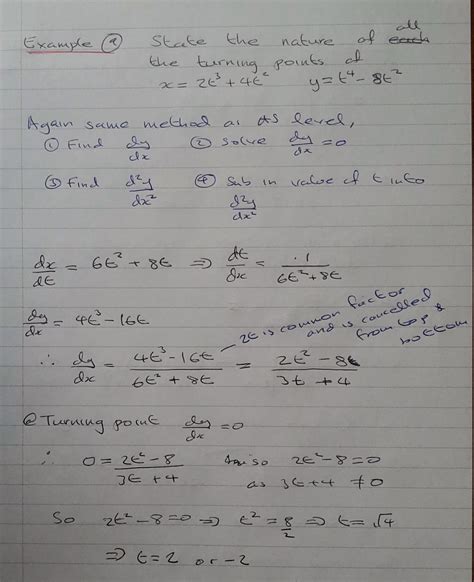 Example ⑨ State the nature of all
the turning points of
x = 2t³ + 4t² y = t⁴ - 8t²
Again same method as AS level,
① Find dy/dx ② Solve dy/dx = 0
③ Find d²y/dx² ④ Sub in value of t into
d²y/dx²
dx/dt = 6t² + 8t ⇒ dt/dx = 1/(6t² + 8t)
dy/dx = 4t³ - 16t
2t is common factor
and is cancelled
from top &
bottom
∴ dy/dx = (4t³ - 16t)/(6t² + 8t) = (2t² - 8t)/(3t + 4)
@ Turning point dy/dx = 0
∴ 0 = (2t² - 8)/(3t + 4) so 2t² - 8 = 0
as 3t + 4 ≠ 0
So 2t² - 8 = 0 ⇒ t² = 8/2 ⇒ t = √4
⇒ t = 2 or -2